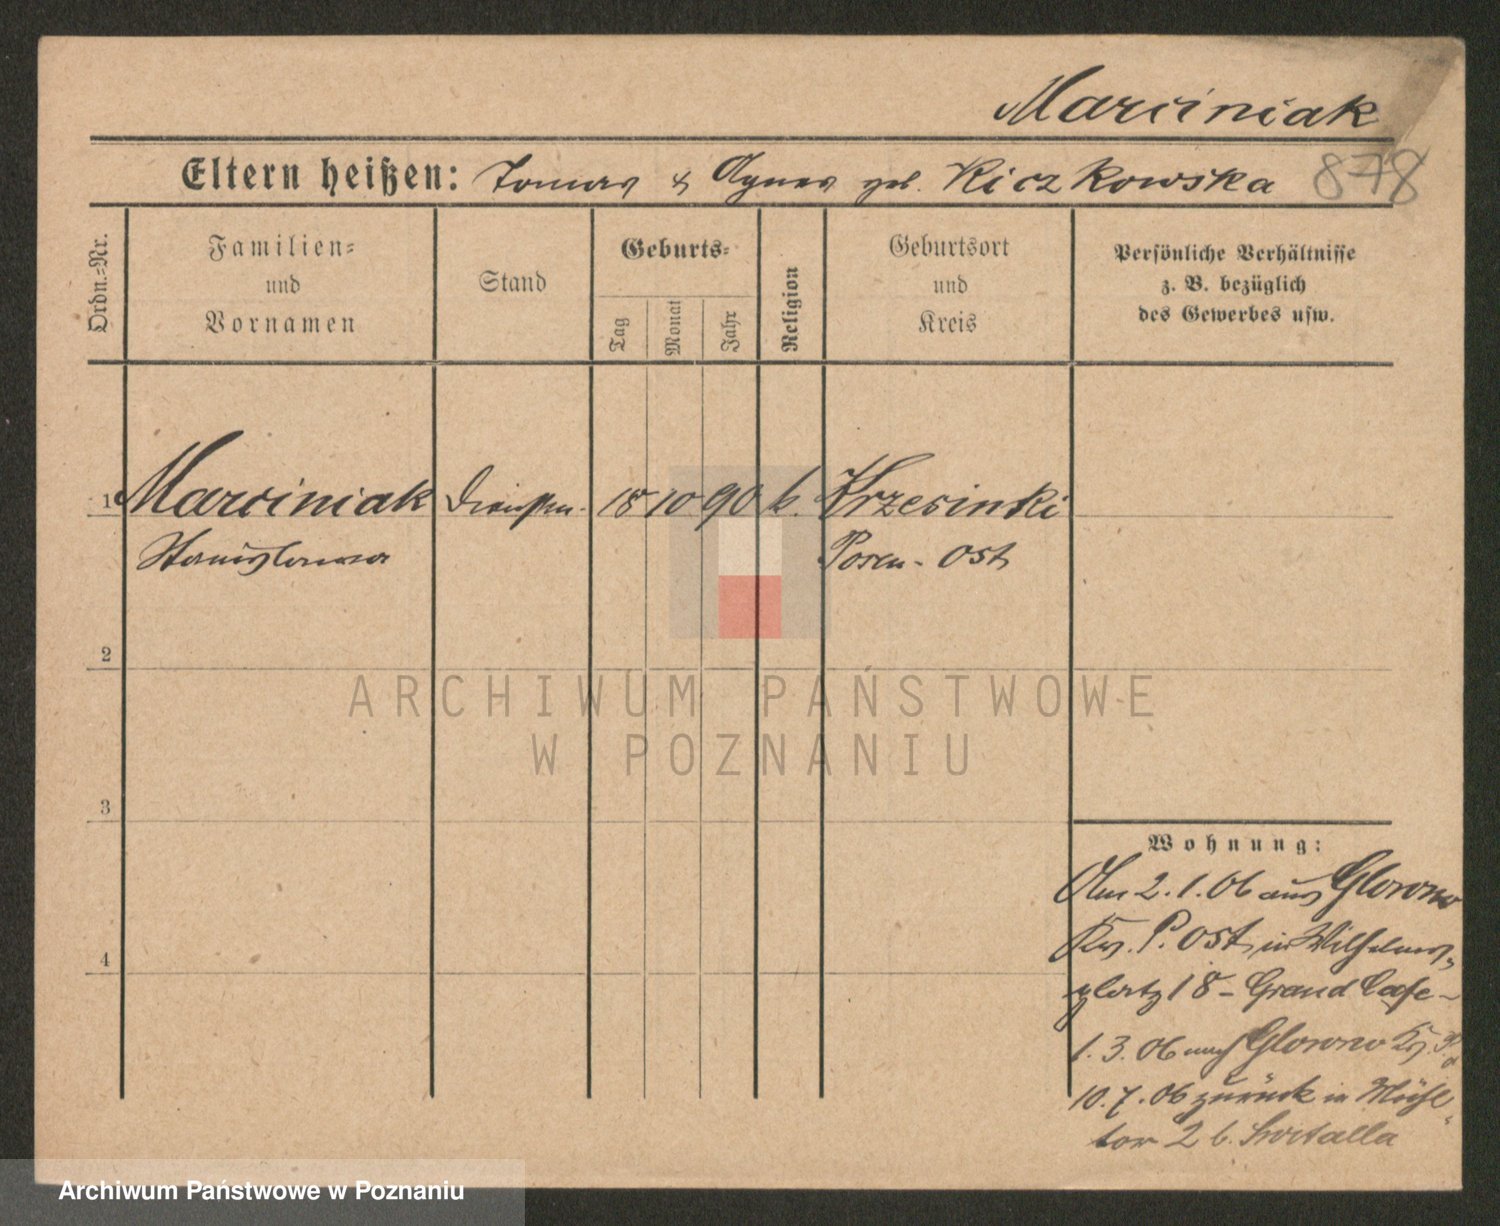 Marciniak
Eltern heißen: Tomas & Agnes geb. Kiczkowska 878
Ordn.-Nr.
Familien-
und
Vornamen
Stand
Geburts-
Tag
Monat
Jahr
Religion
Geburtsort
und
Kreis
Persönliche Verhältnisse
z. B. bezüglich
des Gewerbes usw.
1 Marciniak 18 10 90 k. Krzesinki
Stanislawa Posen-Ost
2
ARCHIWUM PAŃSTWOWE
W POZNANIU
3
Wohnung:
Am 2.1.06 aus Glowno
Krs. P. Ost in Wilhelms-
4
platz 18 - Grand Cafe -
1.3.06 nach Glowno Krs. P. O
10.7.06 zurück in Mühl-
tor 2 b.
Archiwum Państwowe w Poznaniu